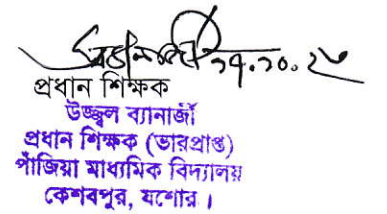 প্রধান শিক্ষক
উজ্জ্বল ব্যানার্জী
প্রধান শিক্ষক (ভারপ্রাপ্ত)
পাঁজিয়া মাধ্যমিক বিদ্যালয়
কেশবপুর, যশোর।